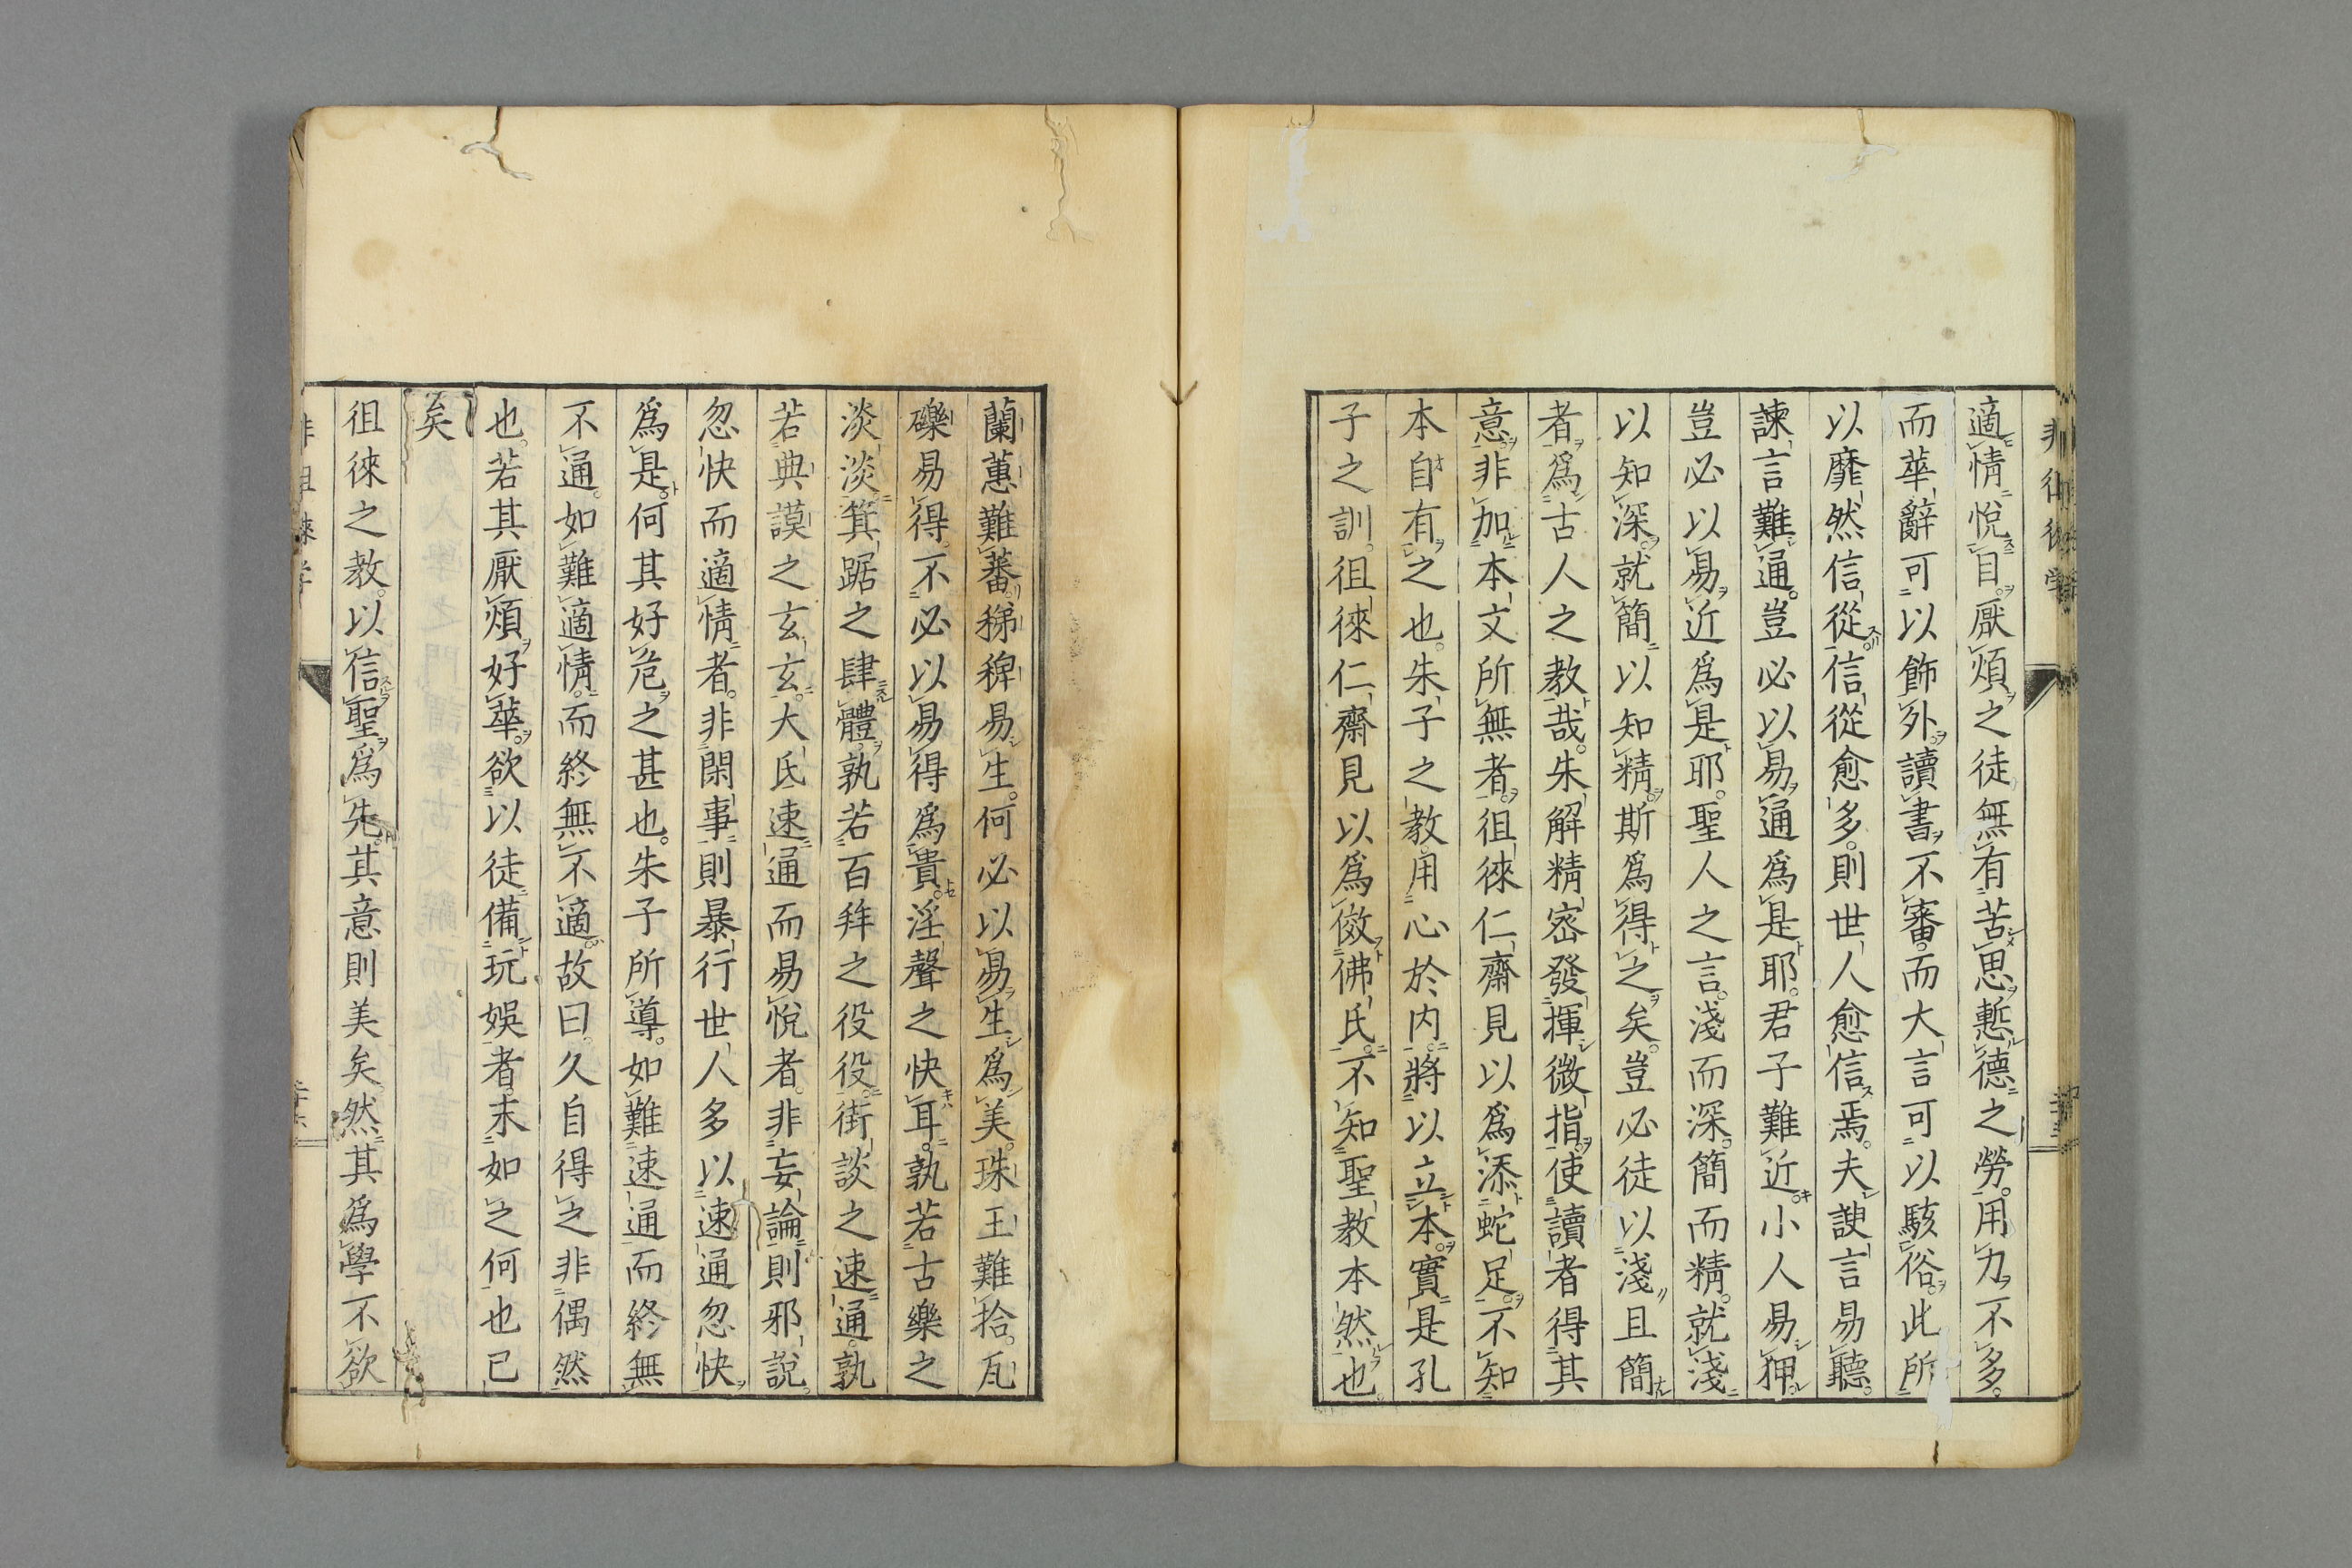 適情悅目厭煩之徒無有苦思慙德之勞用力不多
而華辭可以飾外讀書不審而大言可以駭俗此所
以靡然信從信從愈多則世人愈信焉夫諛言易聽
諫言難通豈必以易通爲是耶君子難近小人易狎
豈必以易近爲是耶聖人之言淺而深簡而精就淺
以知深就簡以知精斯爲得之矣豈必徒以淺且簡
者爲古人之教哉朱解精密發揮微指使讀者得其
意非加本文所無者徂徠仁齋見以爲添蛇足不知
本自有之也朱子之教用心於内將以立本實是孔
子之訓徂徠仁齋見以爲傚佛氏不知聖教本然也
蘭蕙難蕃稊稗易生何必以易生爲美珠玉難拾瓦
礫易得不必以易得爲貴淫聲之快耳孰若古樂之
淡淡箕踞之肆體孰若百拜之役役街談之速通孰
若典謨之玄玄大氐速通而易悅者非妄論則邪說
忽快而適情者非閑事則暴行世人多以速通忽快
爲是何其好危之甚也朱子所導如難速通而終無
不通如難適情而終無不適故曰久自得之非偶然
也若其厭煩好華欲以徒備玩娛者末如之何也已
矣
徂徠之教以信聖爲先其意則美矣然其爲學不欲